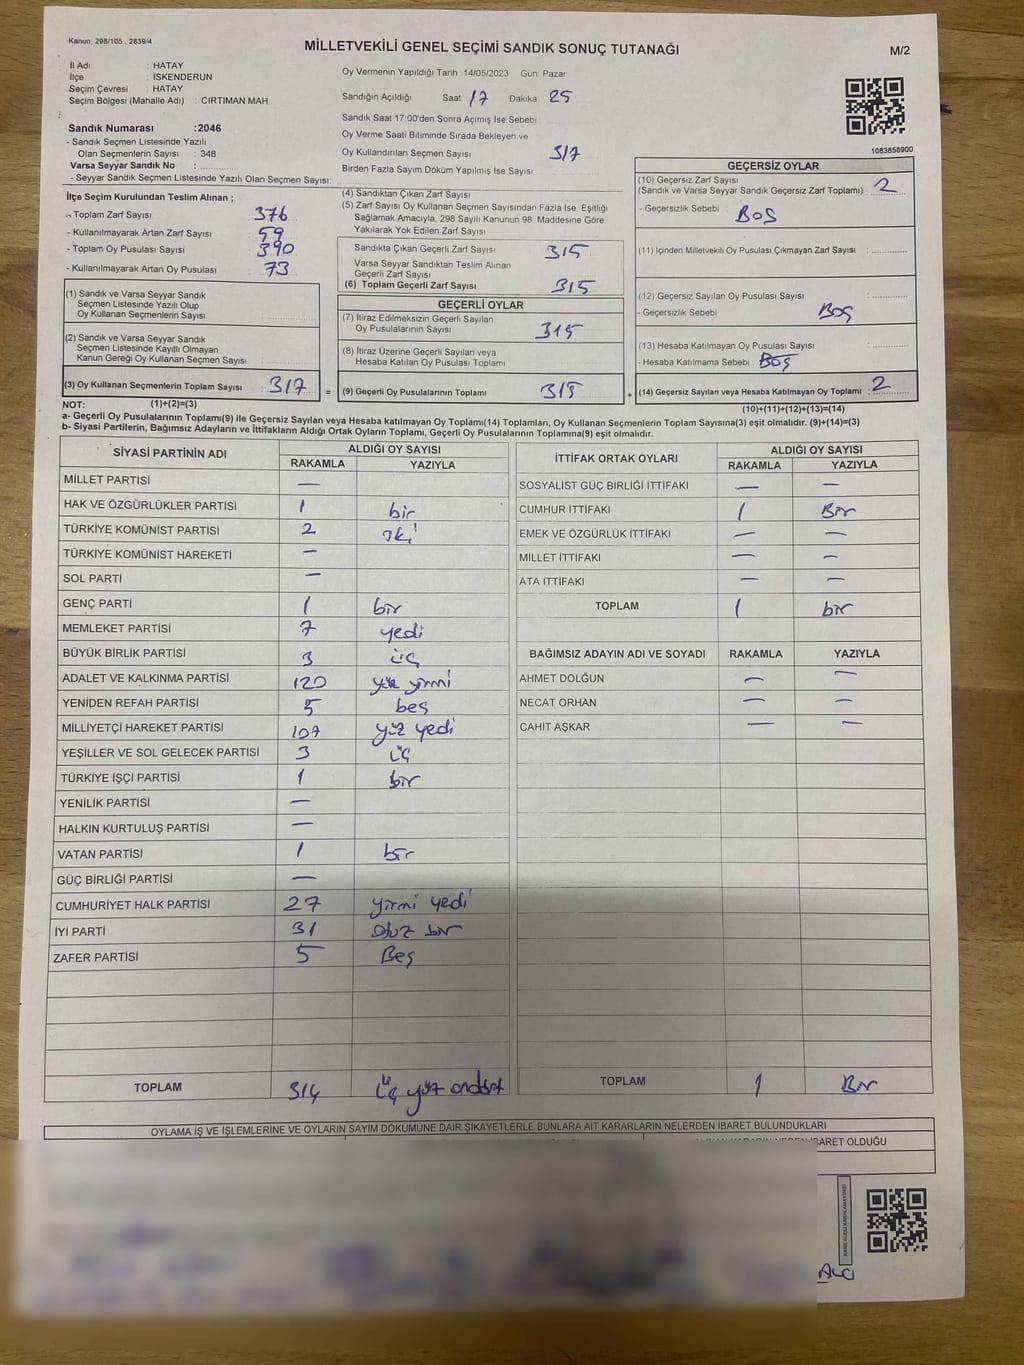 Kanun: 298/105 , 2839/4
MİLLETVEKİLİ GENEL SEÇİMİ SANDIK SONUÇ TUTANAĞI
M/2
İl Adı : HATAY
İlçe : İSKENDERUN
Seçim Çevresi : HATAY
Seçim Bölgesi (Mahalle Adı) : CIRTIMAN MAH.
Sandık Numarası :2046
- Sandık Seçmen Listesinde Yazılı
Olan Seçmenlerin Sayısı : 348
Varsa Seyyar Sandık No :
- Seyyar Sandık Seçmen Listesinde Yazılı Olan Seçmen Sayısı:
Oy Vermenin Yapıldığı Tarih : 14/05/2023 Gün: Pazar
Sandığın Açıldığı Saat 17 Dakika 25
Sandık Saat 17:00'den Sonra Açımış İse Sebebi
Oy Verme Saati Bitiminde Sırada Bekleyen ve
Oy Kullandırılan Seçmen Sayısı 317
Birden Fazla Sayım Döküm Yapılmış İse Sayısı
1083858900
İlçe Seçim Kurulundan Teslim Alınan ;
- Toplam Zarf Sayısı 376
- Kullanılmayarak Artan Zarf Sayısı 59
- Toplam Oy Pusulası Sayısı 390
- Kullanılmayarak Artan Oy Pusulası 73
(1) Sandık ve Varsa Seyyar Sandık
Seçmen Listesinde Yazılı Olup
Oy Kullanan Seçmenlerin Sayısı :
(2) Sandık ve Varsa Seyyar Sandık
Seçmen Listesinde Kayıtlı Olmayan
Kanun Gereği Oy Kullanan Seçmen Sayısı :
(3) Oy Kullanan Seçmenlerin Toplam Sayısı : 317 =
(4) Sandıktan Çıkan Zarf Sayısı
(5) Zarf Sayısı Oy Kullanan Seçmen Sayısından Fazla İse, Eşitliği
Sağlamak Amacıyla, 298 Sayılı Kanunun 98. Maddesine Göre
Yakılarak Yok Edilen Zarf Sayısı
Sandıkta Çıkan Geçerli Zarf Sayısı 315
Varsa Seyyar Sandıktan Teslim Alınan
Geçerli Zarf Sayısı
(6) Toplam Geçerli Zarf Sayısı 315
GEÇERLİ OYLAR
(7) İtiraz Edilmeksizin Geçerli Sayılan
Oy Pusulalarının Sayısı 315
(8) İtiraz Üzerine Geçerli Sayılan veya
Hesaba Katılan Oy Pusulası Toplamı
(9) Geçerli Oy Pusulalarının Toplamı 315 +
GEÇERSİZ OYLAR
(10) Geçersiz Zarf Sayısı
(Sandık ve Varsa Seyyar Sandık Geçersiz Zarf Toplamı) 2
- Geçersizlik Sebebi : BOŞ
(11) İçinden Milletvekili Oy Pusulası Çıkmayan Zarf Sayısı :
(12) Geçersiz Sayılan Oy Pusulası Sayısı :
- Geçersizlik Sebebi Boş
(13) Hesaba Katılmayan Oy Pusulası Sayısı :
- Hesaba Katılmama Sebebi : Boş
(14) Geçersiz Sayılan veya Hesaba Katılmayan Oy Toplamı : 2
NOT: (1)+(2)=(3) (10)+(11)+(12)+(13)=(14)
a- Geçerli Oy Pusulalarının Toplamı(9) ile Geçersiz Sayılan veya Hesaba katılmayan Oy Toplamı(14) Toplamları, Oy Kullanan Seçmenlerin Toplam Sayısına(3) eşit olmalıdır. (9)+(14)=(3)
b- Siyasi Partilerin, Bağımsız Adayların ve İttifakların Aldığı Ortak Oyların Toplamı, Geçerli Oy Pusulalarının Toplamına(9) eşit olmalıdır.
SİYASİ PARTİNİN ADI ALDIĞI OY SAYISI
RAKAMLA YAZIYLA
MİLLET PARTİSİ —
HAK VE ÖZGÜRLÜKLER PARTİSİ 1 bir
TÜRKİYE KOMÜNİST PARTİSİ 2 iki
TÜRKİYE KOMÜNİST HAREKETİ —
SOL PARTİ —
GENÇ PARTİ 1 bir
MEMLEKET PARTİSİ 7 yedi
BÜYÜK BİRLİK PARTİSİ 3 üç
ADALET VE KALKINMA PARTİSİ 120 yüz yirmi
YENİDEN REFAH PARTİSİ 5 beş
MİLLİYETÇİ HAREKET PARTİSİ 107 yüz yedi
YEŞİLLER VE SOL GELECEK PARTİSİ 3 üç
TÜRKİYE İŞÇİ PARTİSİ 1 bir
YENİLİK PARTİSİ —
HALKIN KURTULUŞ PARTİSİ —
VATAN PARTİSİ 1 bir
GÜÇ BİRLİĞİ PARTİSİ —
CUMHURİYET HALK PARTİSİ 27 yirmi yedi
İYİ PARTİ 31 otuz bir
ZAFER PARTİSİ 5 Beş
TOPLAM 314 üç yüz ondört
İTTİFAK ORTAK OYLARI ALDIĞI OY SAYISI
RAKAMLA YAZIYLA
SOSYALİST GÜÇ BİRLİĞİ İTTİFAKI — —
CUMHUR İTTİFAKI 1 Bir
EMEK VE ÖZGÜRLÜK İTTİFAKI — —
MİLLET İTTİFAKI — —
ATA İTTİFAKI — —
TOPLAM 1 bir
BAĞIMSIZ ADAYIN ADI VE SOYADI RAKAMLA YAZIYLA
AHMET DOLĞUN — —
NECAT ORHAN — —
CAHİT AŞKAR — —
TOPLAM 1 Bir
OYLAMA İŞ VE İŞLEMLERİNE VE OYLARIN SAYIM DÖKÜMÜNE DAİR ŞİKAYETLERLE BUNLARA AİT KARARLARIN NELERDEN İBARET BULUNDUKLARI
İBARET OLDUĞU